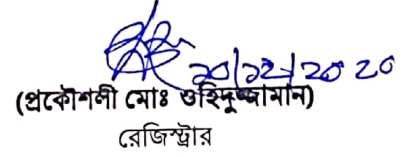 ২০/১২/২০২০
(প্রকৌশলী মোঃ ওহিদুজ্জামান)
রেজিস্ট্রার